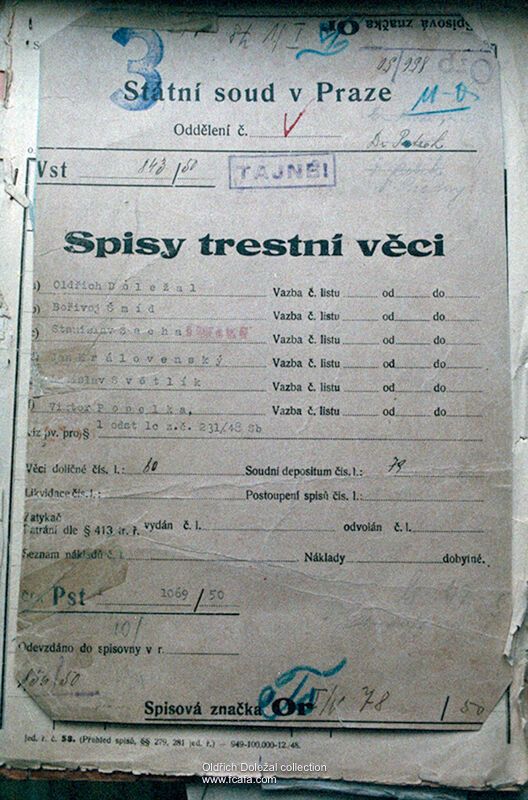 Spisová značka Or
3
Státní soud v Praze
Oddělení č.
V
Vst 843/50
TAJNÉ!
Spisy trestní věci
a) Oldřich Doležal Vazba č. listu od do
b) Bořivoj Šmíd Vazba č. listu od do
c) Stanislav Šacha Vazba č. listu od do
Jan Královenský Vazba č. listu od do
islav Světlík Vazba č. listu od do
f) Viktor Popelka, Vazba č. listu od do
viz pv. pro § 1 odst 1c z.č. 231/48 Sb
Věci doličné čís. l.: 60 Soudní depositum čís. l.: 79
Likvidace čís. l.: Postoupení spisů čís. l.:
Zatykač
Pátrání dle § 413 tr. ř. vydán č. l. odvolán č. l.
Seznam nákladů č. l. Náklady dobytné.
Pst 1069/50
10/
Odevzdáno do spisovny v r.
Spisová značka Or 78/50
Jed. ř. č. 58. (Přehled spisů, §§ 279, 281 jed. ř.) — 949-100.000-12./48.
Oldřich Doležal collection
www.fcafa.com